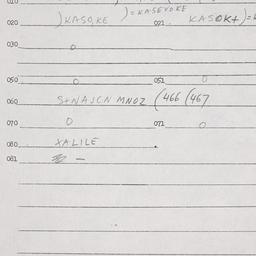 020 ) KASO,KE ) = KASEVOKE 021. KASOK+) =
030 0
050 0 051 0
060 S+NAJCN MNOZ (466 (467
070 0 071 0
080 XALILE
081 —